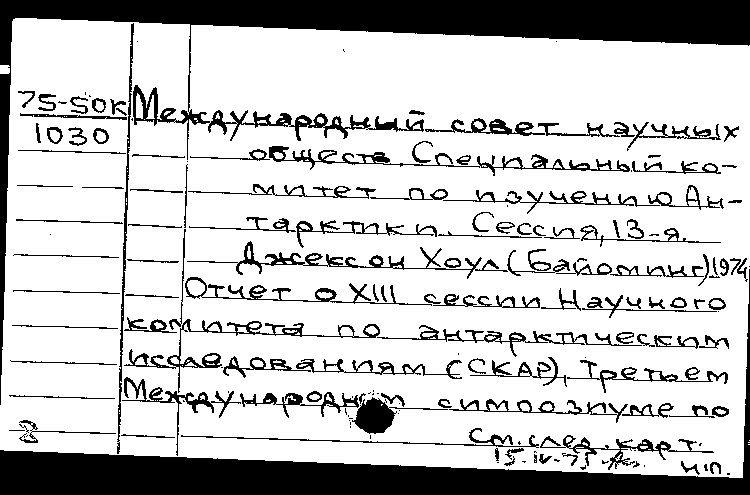 75-50К Международный совет научных
1030
обществ. Специальный ко-
митет по изучению Ан-
тарктики. Сессия, 13-я.
Джексон Хоул (Вайоминг). 1974
Отчет о XIII сессии Научного
комитета по антарктическим
исследованиям (СКАР), Третьем
Международном симпозиуме по
см. след. карт.
15.IV-75 нп.